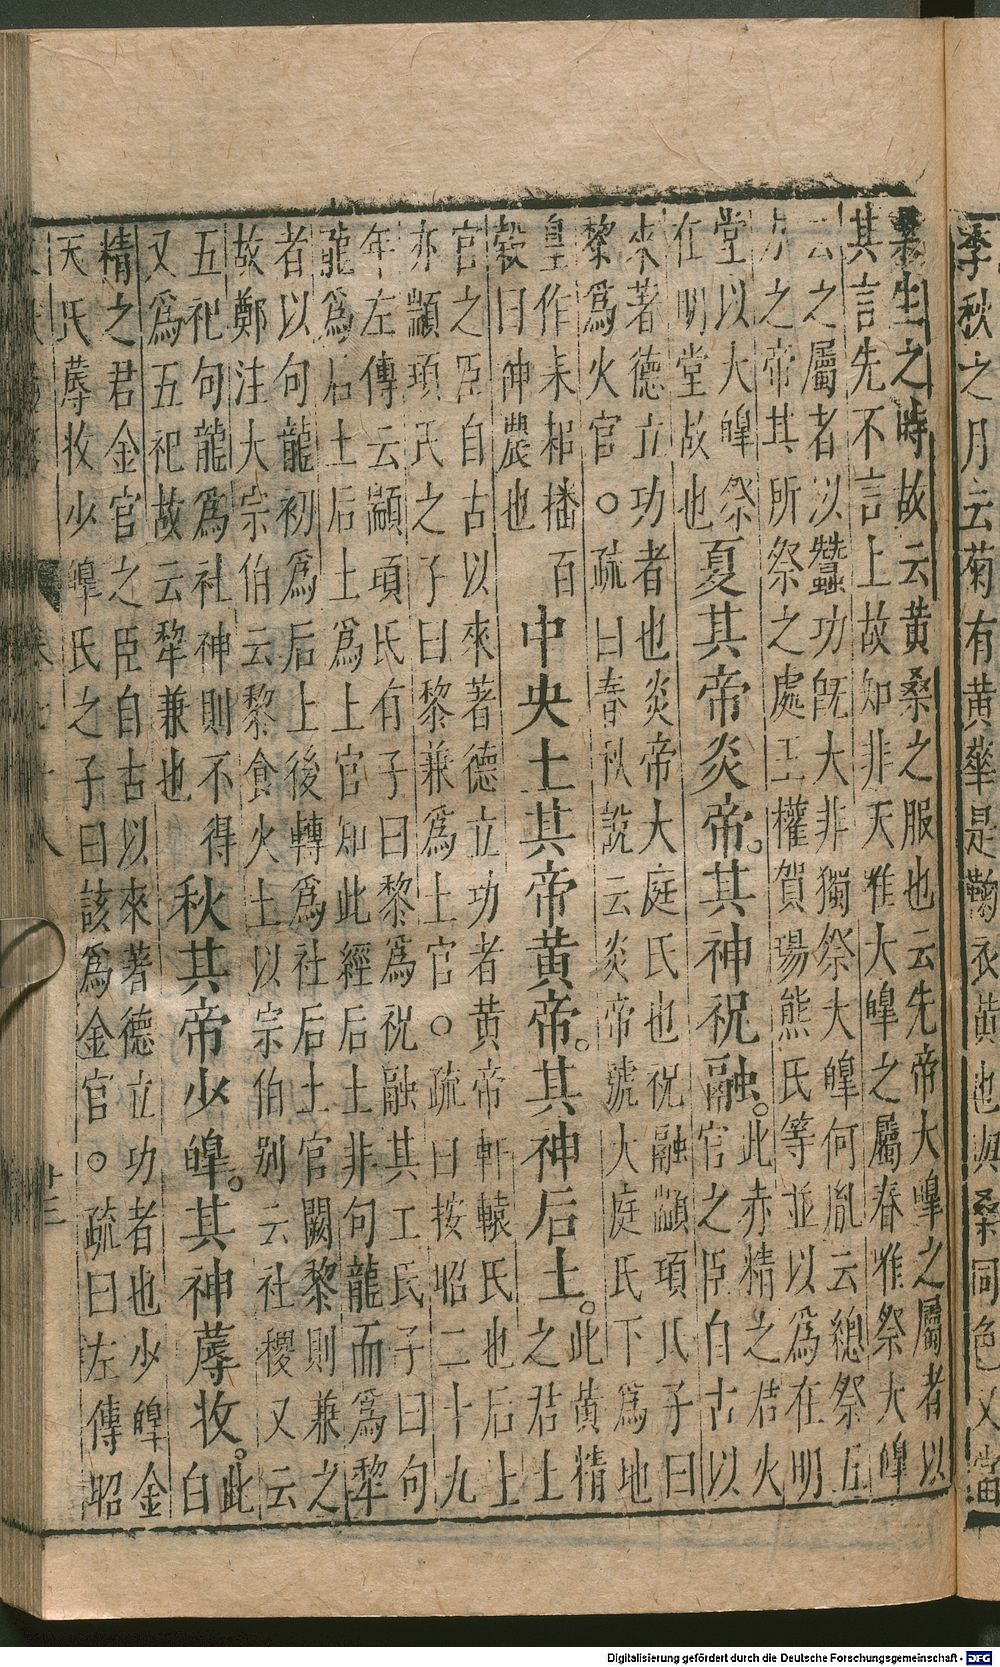 季秋之月云菊有黃華是鞠衣黃也與桑同色又當
桑生之時故云黃桑之服也云先帝大皥之屬者以
其言先不言上故知非天唯大皥之屬春唯祭大皥
云之屬者以蠶功旣大非獨祭大皥何胤云緫祭五
方之帝其所祭之處王權賀瑒熊氏等並以爲在明
堂以大皥祭
在明堂故也
夏其帝炎帝。其神祝融。
此赤精之君火
官之臣自古以
來著德立功者也炎帝大庭氏也祝融顓頊氏子曰
黎爲火官○疏曰春秋說云炎帝號大庭氏下爲地
皇作耒耜播百
榖曰神農也
中央土其帝黃帝。其神后土。
此黃精
之君土
官之臣自古以來著德立功者黃帝軒轅氏也后土
亦顓頊氏之子曰黎兼爲土官○疏曰按昭二十九
年左傳云顓頊氏有子曰黎爲祝融其工氏子曰句
龍爲后土后土爲土官知此經后土非句龍而爲犂
者以句龍初爲后上後轉爲社后土官闕黎則兼之
故鄭注大宗伯云黎食火土以宗伯别云社稷又云
五祀句龍爲社神則不得
又爲五祀故云犂兼也
秋其帝少皥。其神蓐收。
此
白
精之君金官之臣自古以來著德立功者也少皥金
天氏蓐收少皥氏之子曰該爲金官○疏曰左傳昭
廿三
Digitalisierung gefördert durch die Deutsche Forschungsgemeinschaft - DFG